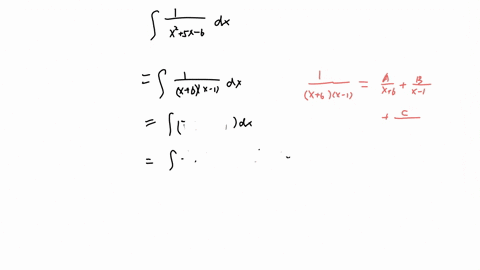 ∫ 1/(x²+5x-6) dx
= ∫ 1/((x+6)(x-1)) dx
1/((x+6)(x-1)) = A/(x+6) + B/(x-1)
+ C/
= ∫( )dx
= ∫